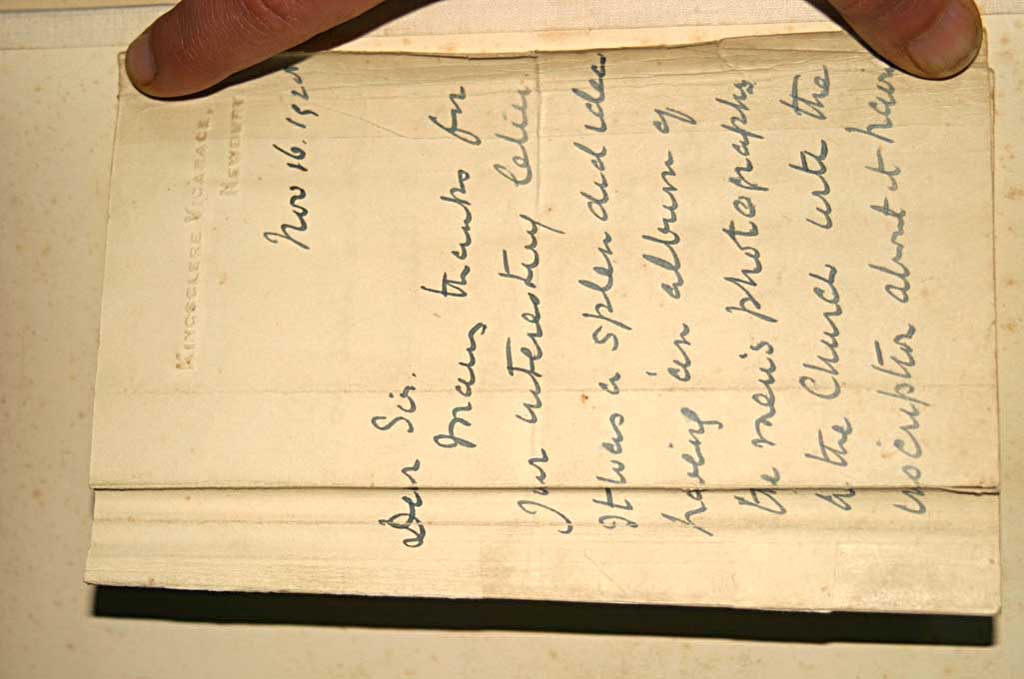 KINGSCLERE VICARAGE,
NEWBURY
Nov 16. 192
Dear Sir.
Many thanks for
your interesting letter
It was a splendid idea
having an album of
the men's photographs
in the Church with the
inscription about it